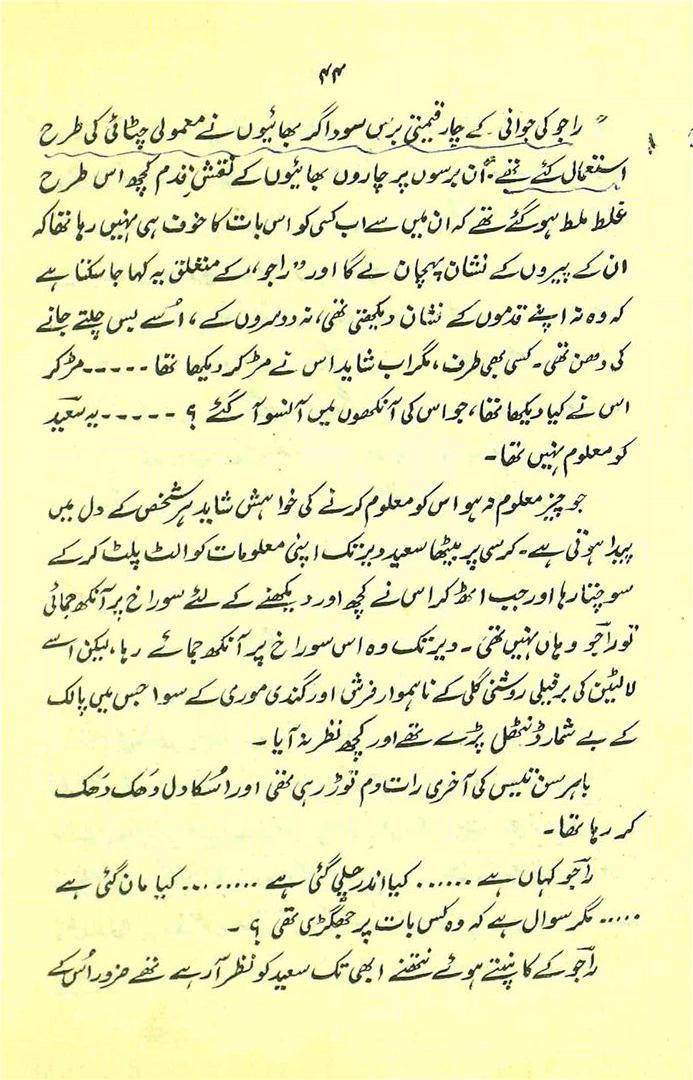 ۴۴
”راجو کی جوانی کے چار قیمتی برس سوداگر بھائیوں نے معمولی چٹائی کی طرح
استعمال کئے تھے“ اُن برسوں پر چاروں بھائیوں کے نقشِ قدم کچھ اس طرح
غلط ملط ہو گئے تھے کہ ان میں سے اب کسی کو اس بات کا خوف ہی نہیں رہا تھا کہ
ان کے پیروں کے نشان پہچان لے گا اور ”راجو“، کے متعلق یہ کہا جا سکتا ہے
کہ وہ نہ اپنے قدموں کے نشان دیکھتی تھی، نہ دوسروں کے، اُسے بس چلتے جانے
کی دھن تھی۔ کسی بھی طرف، مگر اب شاید اس نے مڑ کر دیکھا تھا ۔۔۔۔۔ مڑ کر
اس نے کیا دیکھا تھا، جو اس کی آنکھوں میں آنسو آ گئے ؟ ۔۔۔۔۔ یہ سعید
کو معلوم نہیں تھا۔
جو چیز معلوم نہ ہو اس کو معلوم کرنے کی خواہش شاید ہر شخص کے دل میں
پیدا ہوتی ہے۔ کرسی پر بیٹھا سعید دیر تک اپنی معلومات کو الٹ پلٹ کر کے
سوچتا رہا اور جب اٹھ کر اس نے کچھ اور دیکھنے کے لئے سوراخ پر آنکھ جمائی
تو راجو وہاں نہیں تھی۔ دیر تک وہ اس سوراخ پر آنکھ جمائے رہا، لیکن اسے
لالٹین کی برفیلی روشنی گلی کے ناہموار فرش اور گندی موری کے سوا جس میں پالک
کے بے شمار ڈنٹھل پڑے تھے اور کچھ نظر نہ آیا۔
باہر سن تیس کی آخری رات دم توڑ رہی تھی اور اُسکا دل دَھک دَھک
کر رہا تھا۔
راجو کہاں ہے ...... کیا اندر چلی گئی ہے ........ کیا مان گئی ہے
..... مگر سوال ہے کہ وہ کس بات پر جھگڑی تھی ؟ ۔
راجو کے کانپتے ہوئے نتھنے ابھی تک سعید کو نظر آ رہے تھے ضرور اُس کے